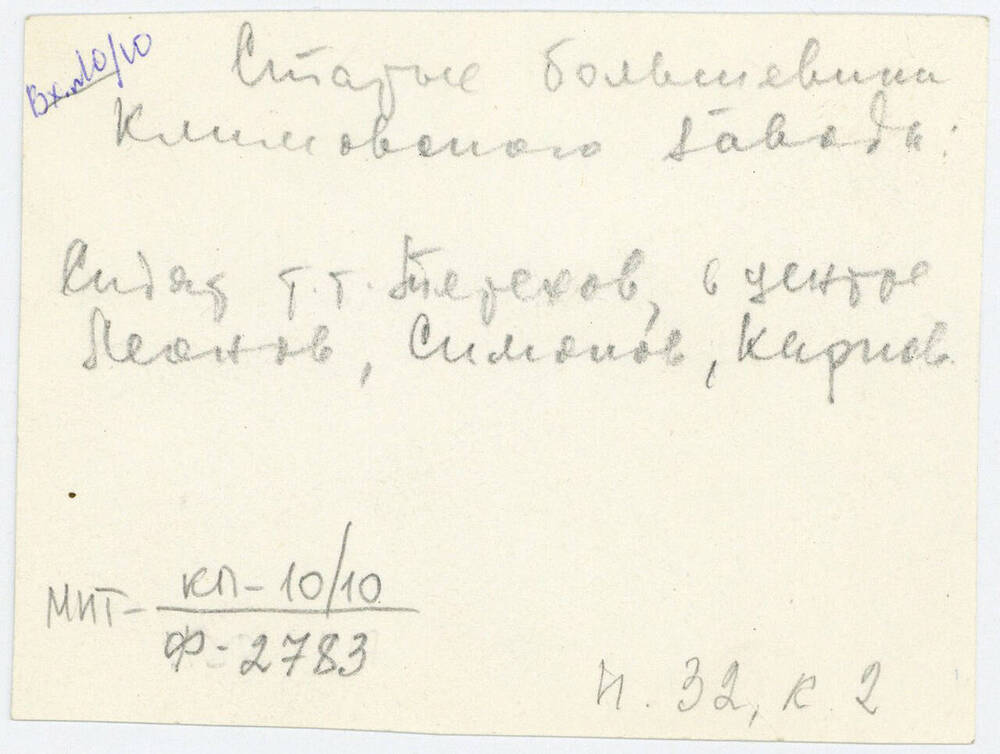 Вх.н10/10
Старые большевики
Климовского завода:
Сидят т.т. Терехов, в центре
Леонов, Симонов, Карпов
МИТ- КП-10/10
Ф-2783
п. 32, к. 2